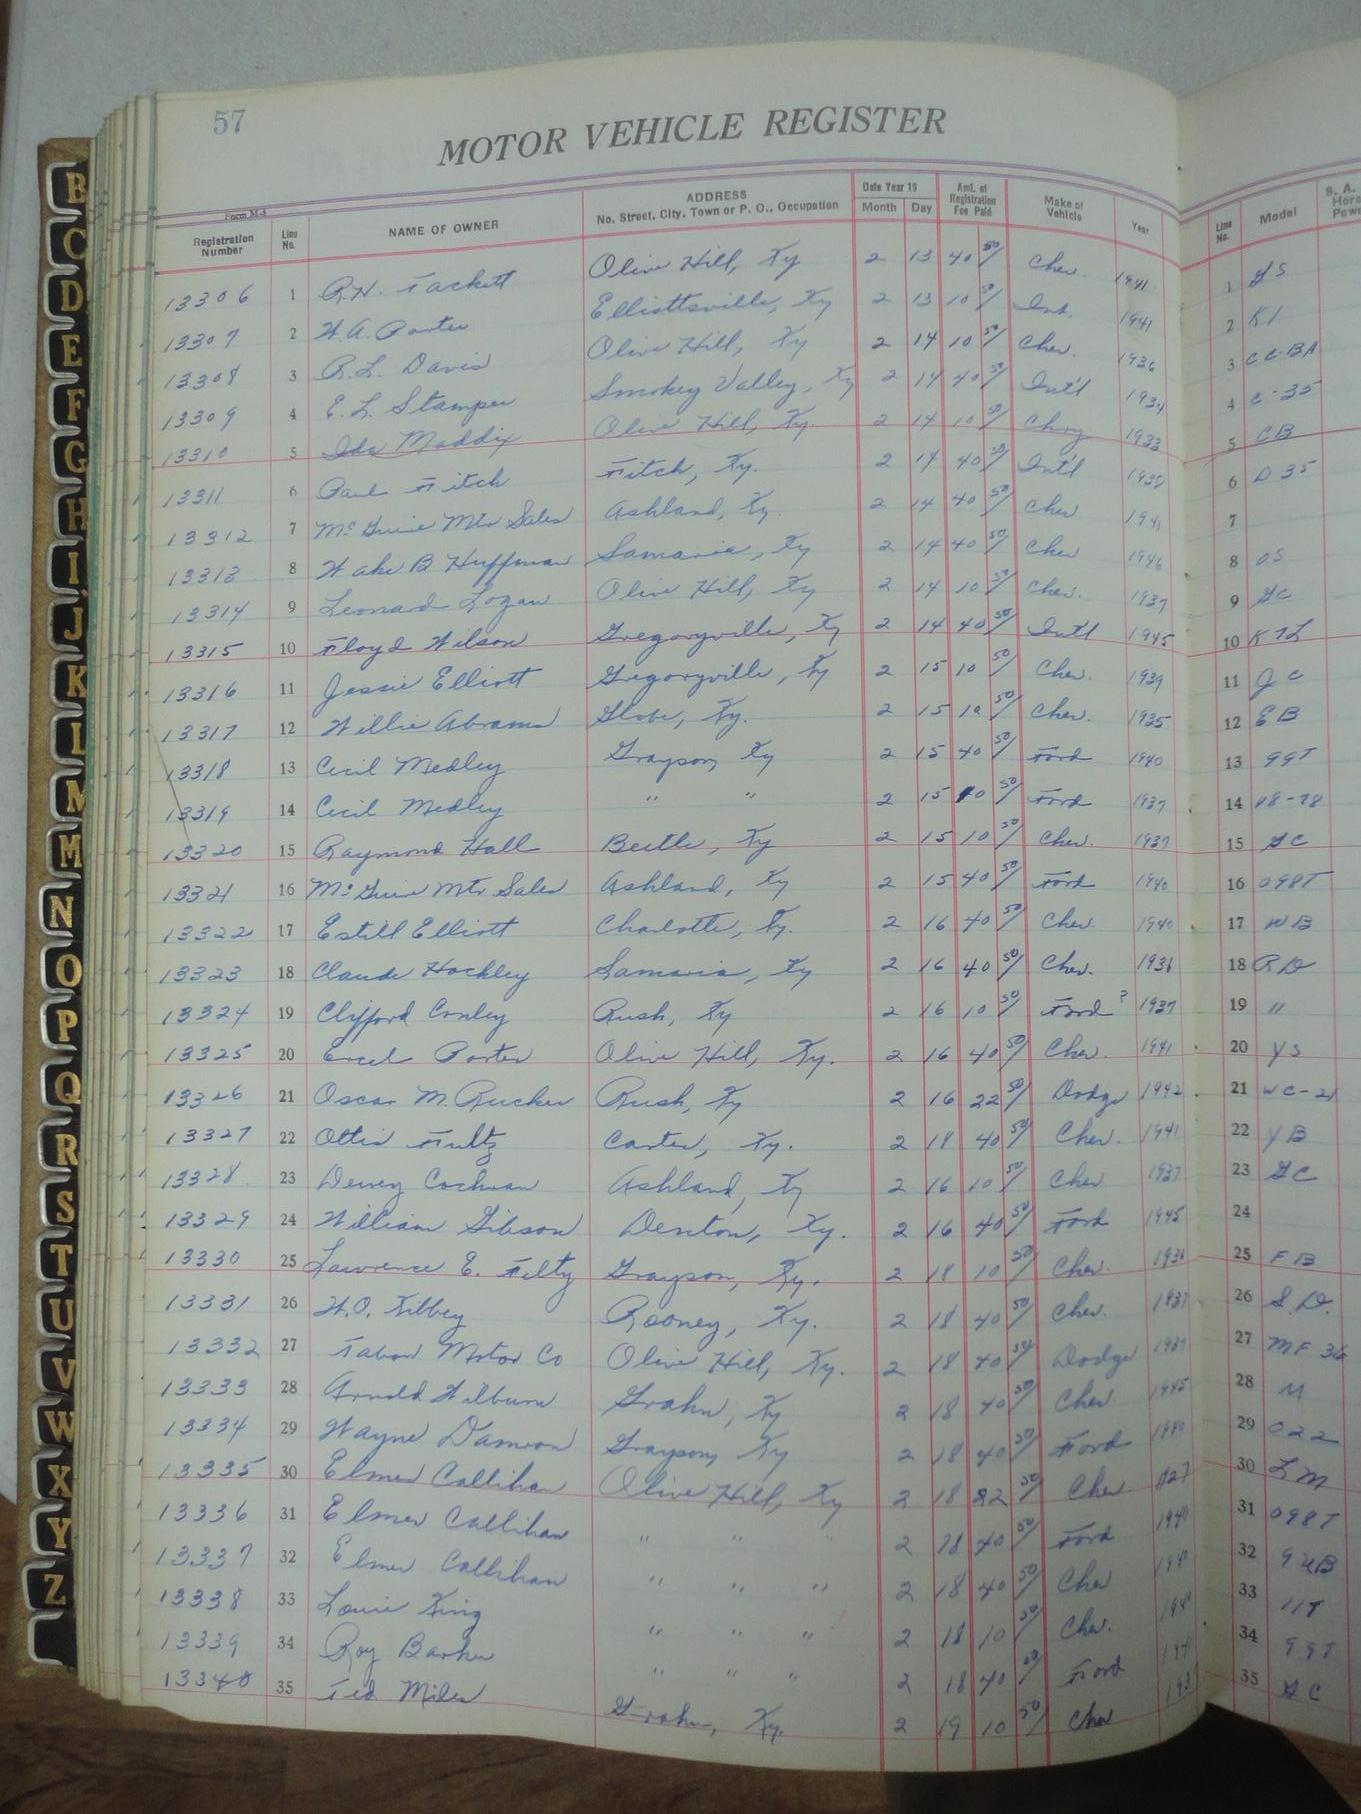 57
MOTOR VEHICLE REGISTER
Form M-4
Registration Number Line No. NAME OF OWNER ADDRESS No. Street, City, Town or P. O., Occupation Date Year 19 Month Day Amt. of Registration Fee Paid Make of Vehicle Year Line No. Model S. A.
13306 1 R.H. Tackett Olive Hill, Ky 2 13 40 50 Chev. 1941 1 YS
13307 2 W.A. Porter Elliottsville, Ky 2 13 10 50 Int. 1941 2 K1
13308 3 R.L. Davis Olive Hill, Ky 2 14 10 50 Chev. 1936 3
13309 4 E.L. Stamper Smokey Valley, Ky 2 14 40 50 Int'l 4 C-35
13310 5 Ida Maddix Olive Hill, Ky. 2 14 10 50 1933 5 CB
13311 6 Paul Fitch Fitch, Ky. 2 14 40 50 Int'l 6 D 35
13312 7 McGuire Mtr Sales Ashland, Ky. 2 14 40 50 Chev 1941 7
13313 8 B Huffman Samaria, Ky 2 14 40 50 Chev 1946 8 OS
13314 9 Leonard Logan Olive Hill, Ky 2 14 10 50 Chev. 1937 9 GC
13315 10 Floyd Wilson Gregoryville, Ky 2 14 40 50 Int'l 1945 10
13316 11 Jessie Elliott Gregoryville, Ky 2 15 10 50 Chev. 1939 11 JC
13317 12 Willie Abrams Globe, Ky. 2 15 10 50 Chev. 1935 12 EB
13318 13 Cecil Medley Grayson, Ky 2 15 40 50 Ford 1940 13 99T
13319 14 Cecil Medley " " 2 15 10 50 Ford 1937 14
13320 15 Raymond Hall Beetle, Ky 2 15 10 50 Chev. 1937 15 GC
13321 16 McGuire Mtr Sales Ashland, Ky 2 15 40 50 Ford 1940 16 098T
13322 17 Estill Elliott Charlotte, Ky. 2 16 40 50 Chev. 1940 17 WB
13323 18 Claude Hockley Samaria, Ky 2 16 40 50 Chev. 1936 18 RD
13324 19 Clifford Conley Rush, Ky 2 16 10 50 Ford ? 1937 19 "
13325 20 Ercel Porter Olive Hill, Ky. 2 16 40 50 Chev. 1941 20 YS
13326 21 Oscar M. Rucker Rush, Ky 2 16 22 50 Dodge 1942 21 WC-21
13327 22 Ottis Fultz Carter, Ky. 2 18 40 50 Chev. 1941 22 YB
13328 23 Dewey Cochran Ashland, Ky 2 16 10 50 Chev 1937 23 GC
13329 24 William Gibson Denton, Ky. 2 16 40 50 Ford 1945 24
13330 25 Lawrence E. Felty Grayson, Ky. 2 18 10 50 Chev. 1936 25 FB
13331 26 W.O. Kilbey Rooney, Ky. 2 18 40 50 Chev. 1937 26 S.D.
13332 27 Tabor Motor Co Olive Hill, Ky. 2 18 40 50 Dodge 27 MF 36
13333 28 Arnold Wilburn Grahn, Ky 2 18 40 50 Chev. 1945 28 M
13334 29 Wayne Damron Grayson, Ky 2 18 40 50 Ford 1940 29 022
13335 30 Elmer Callihan Olive Hill, Ky 2 18 22 50 Chev 30 LM
13336 31 Elmer Callihan " " " 2 18 40 50 Ford 1940 31 098T
13337 32 Elmer Callihan " " " 2 18 40 50 Chev 32
13338 33 Louie King " " " 2 18 10 50 Chev. 33 11T
13339 34 Roy Barker " " " 2 18 40 Ford 34 99T
13340 35 Ted Miles Grahn, Ky. 2 19 10 50 Chev 35 GC
B
C
D
E
F
G
H
I
J
K
L
M
M
N
O
P
Q
R
S
T
U
V
W
X
Y
Z